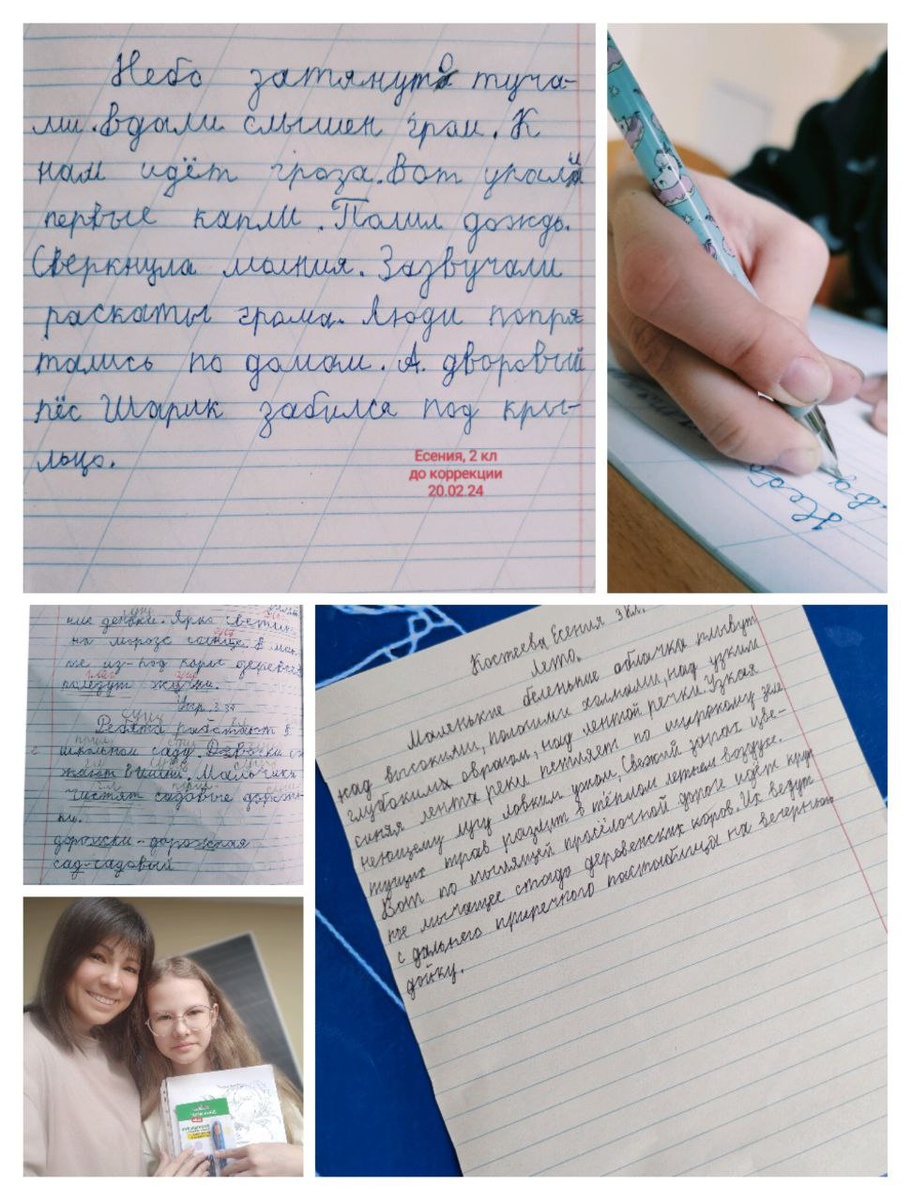 Небо затянуто туча-
ми. Вдали слышен гром. К
нам идёт гроза. Вот упали
первые капли. Полил дождь.
Сверкнула молния. Зазвучали
раскаты грома. Люди попря
тались по домам. А дворовый
пёс Шарик забился под кры-
льцо.
Есения, 2 кл
до коррекции
20.02.24
Небо
вд
ние деньки. Ярко светит
на морозе солнце. В
из-под коры
ползут жучки.
Упр. 3
Ребята работают в
школьном саду.
вишни. Мальчики
чистят садовые дорож-
ки.
дорожки - дорожная
сад - садовый
Костеева Есения 3 кл.
Лето.
Маленькие беленькие облачка плывут
над высокими, пологими холмами, над узким
глубоким оврагом, над лентой речки. Узкая
синяя лента реки петляет по широкому зеле
неющему лугу ловким ужом. Свежий запах цве-
тущих трав разлит в тёплом летнем воздухе.
Вот по пылящей просёлочной дороге идёт круп
ное мычащее стадо деревенских коров. Их ведут
с дальнего приречного пастбища на вечернюю
дойку.